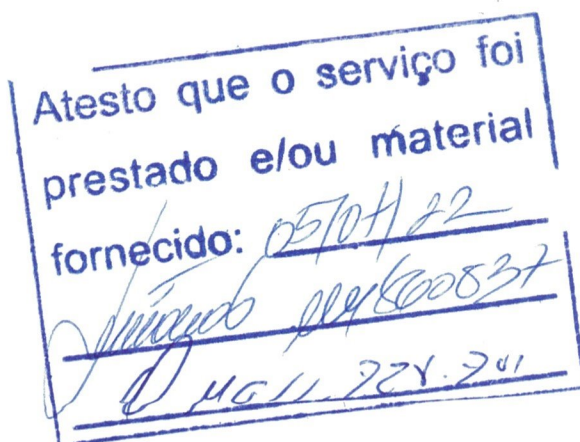 Atesto que o serviço foi
prestado e/ou material
fornecido: 05/07/22
860837
221.201